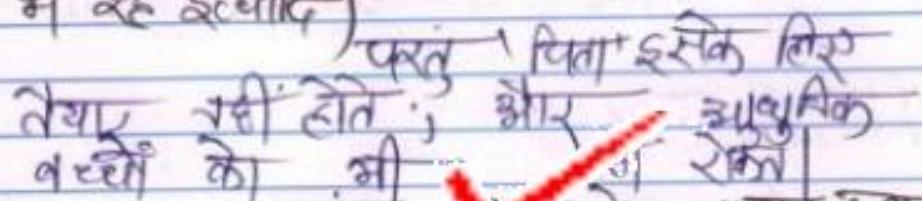 में रह इत्यादि)
परंतु 'पिता' इसके लिए
तैयार नहीं होते; और आधुनिक
बच्चों को भी रोकते।